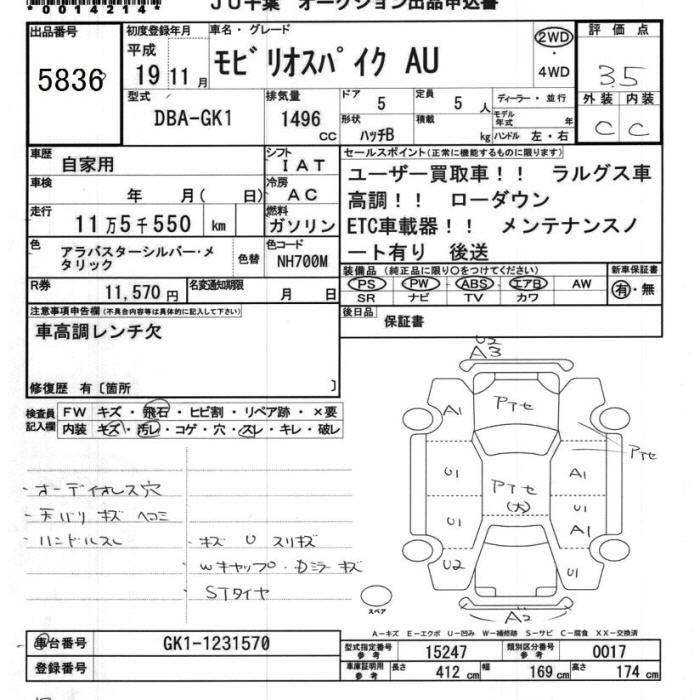 *0014214*
JU千葉 オークション出品申込書
出品番号
5836
初度登録年月
平成
19 11月
車名・グレード
モビリオスパイク AU
2WD
・
4WD
評価点
3.5
外装 内装
C C
型式
DBA-GK1
排気量
1496
cc
ドア 5
定員 5 人
ディーラー・並行
形状 ハッチB
積載 kg
モデル年式 年
ハンドル 左・右
車歴 自家用
シフト IAT
車検 年 月( 日)
冷房 AC
走行 11万5千550 km
燃料 ガソリン
色 アラバスターシルバー・メタリック
色替
色コード NH700M
R券 11,570円
名変通知期限 月 日
セールスポイント(正常に機能するものに限ります)
ユーザー買取車!! ラルグス車
高調!! ローダウン
ETC車載器!! メンテナンスノ
ート有り 後送
装備品(純正品に限り○をつけてください)
PS PW ABS エアB AW
SR ナビ TV カワ
新車保証書
有・無
後日品 保証書
注意事項申告欄(不具合内容等は具体的に記入して下さい)
車高調レンチ欠
修復歴 有〔箇所 〕
検査員記入欄
FW キズ・飛石・ヒビ割・リペア跡・×要
内装 キズ・汚レ・コゲ・穴・スレ・キレ・破レ
・オーディオレス穴
・天バリ キズ ヘコミ
・ハンドルスレ
・キズ U スリキズ
Wキャップ・Dミラーキズ
STタイヤ
U2
A3
A1
Pアセ
Pアセ
U1
Pアセ
(大)
A1
U1
U1
A1
U2
U1
A2
スペア
A-キズ E-エクボ U-凹み W-補修跡 S-サビ C-腐食 XX-交換済
車台番号 GK1-1231570
登録番号
型式指定番号 参考 15247
類別区分番号 参考 0017
車庫証明用 参考 長さ 412 cm 幅 169 cm 高さ 174 cm